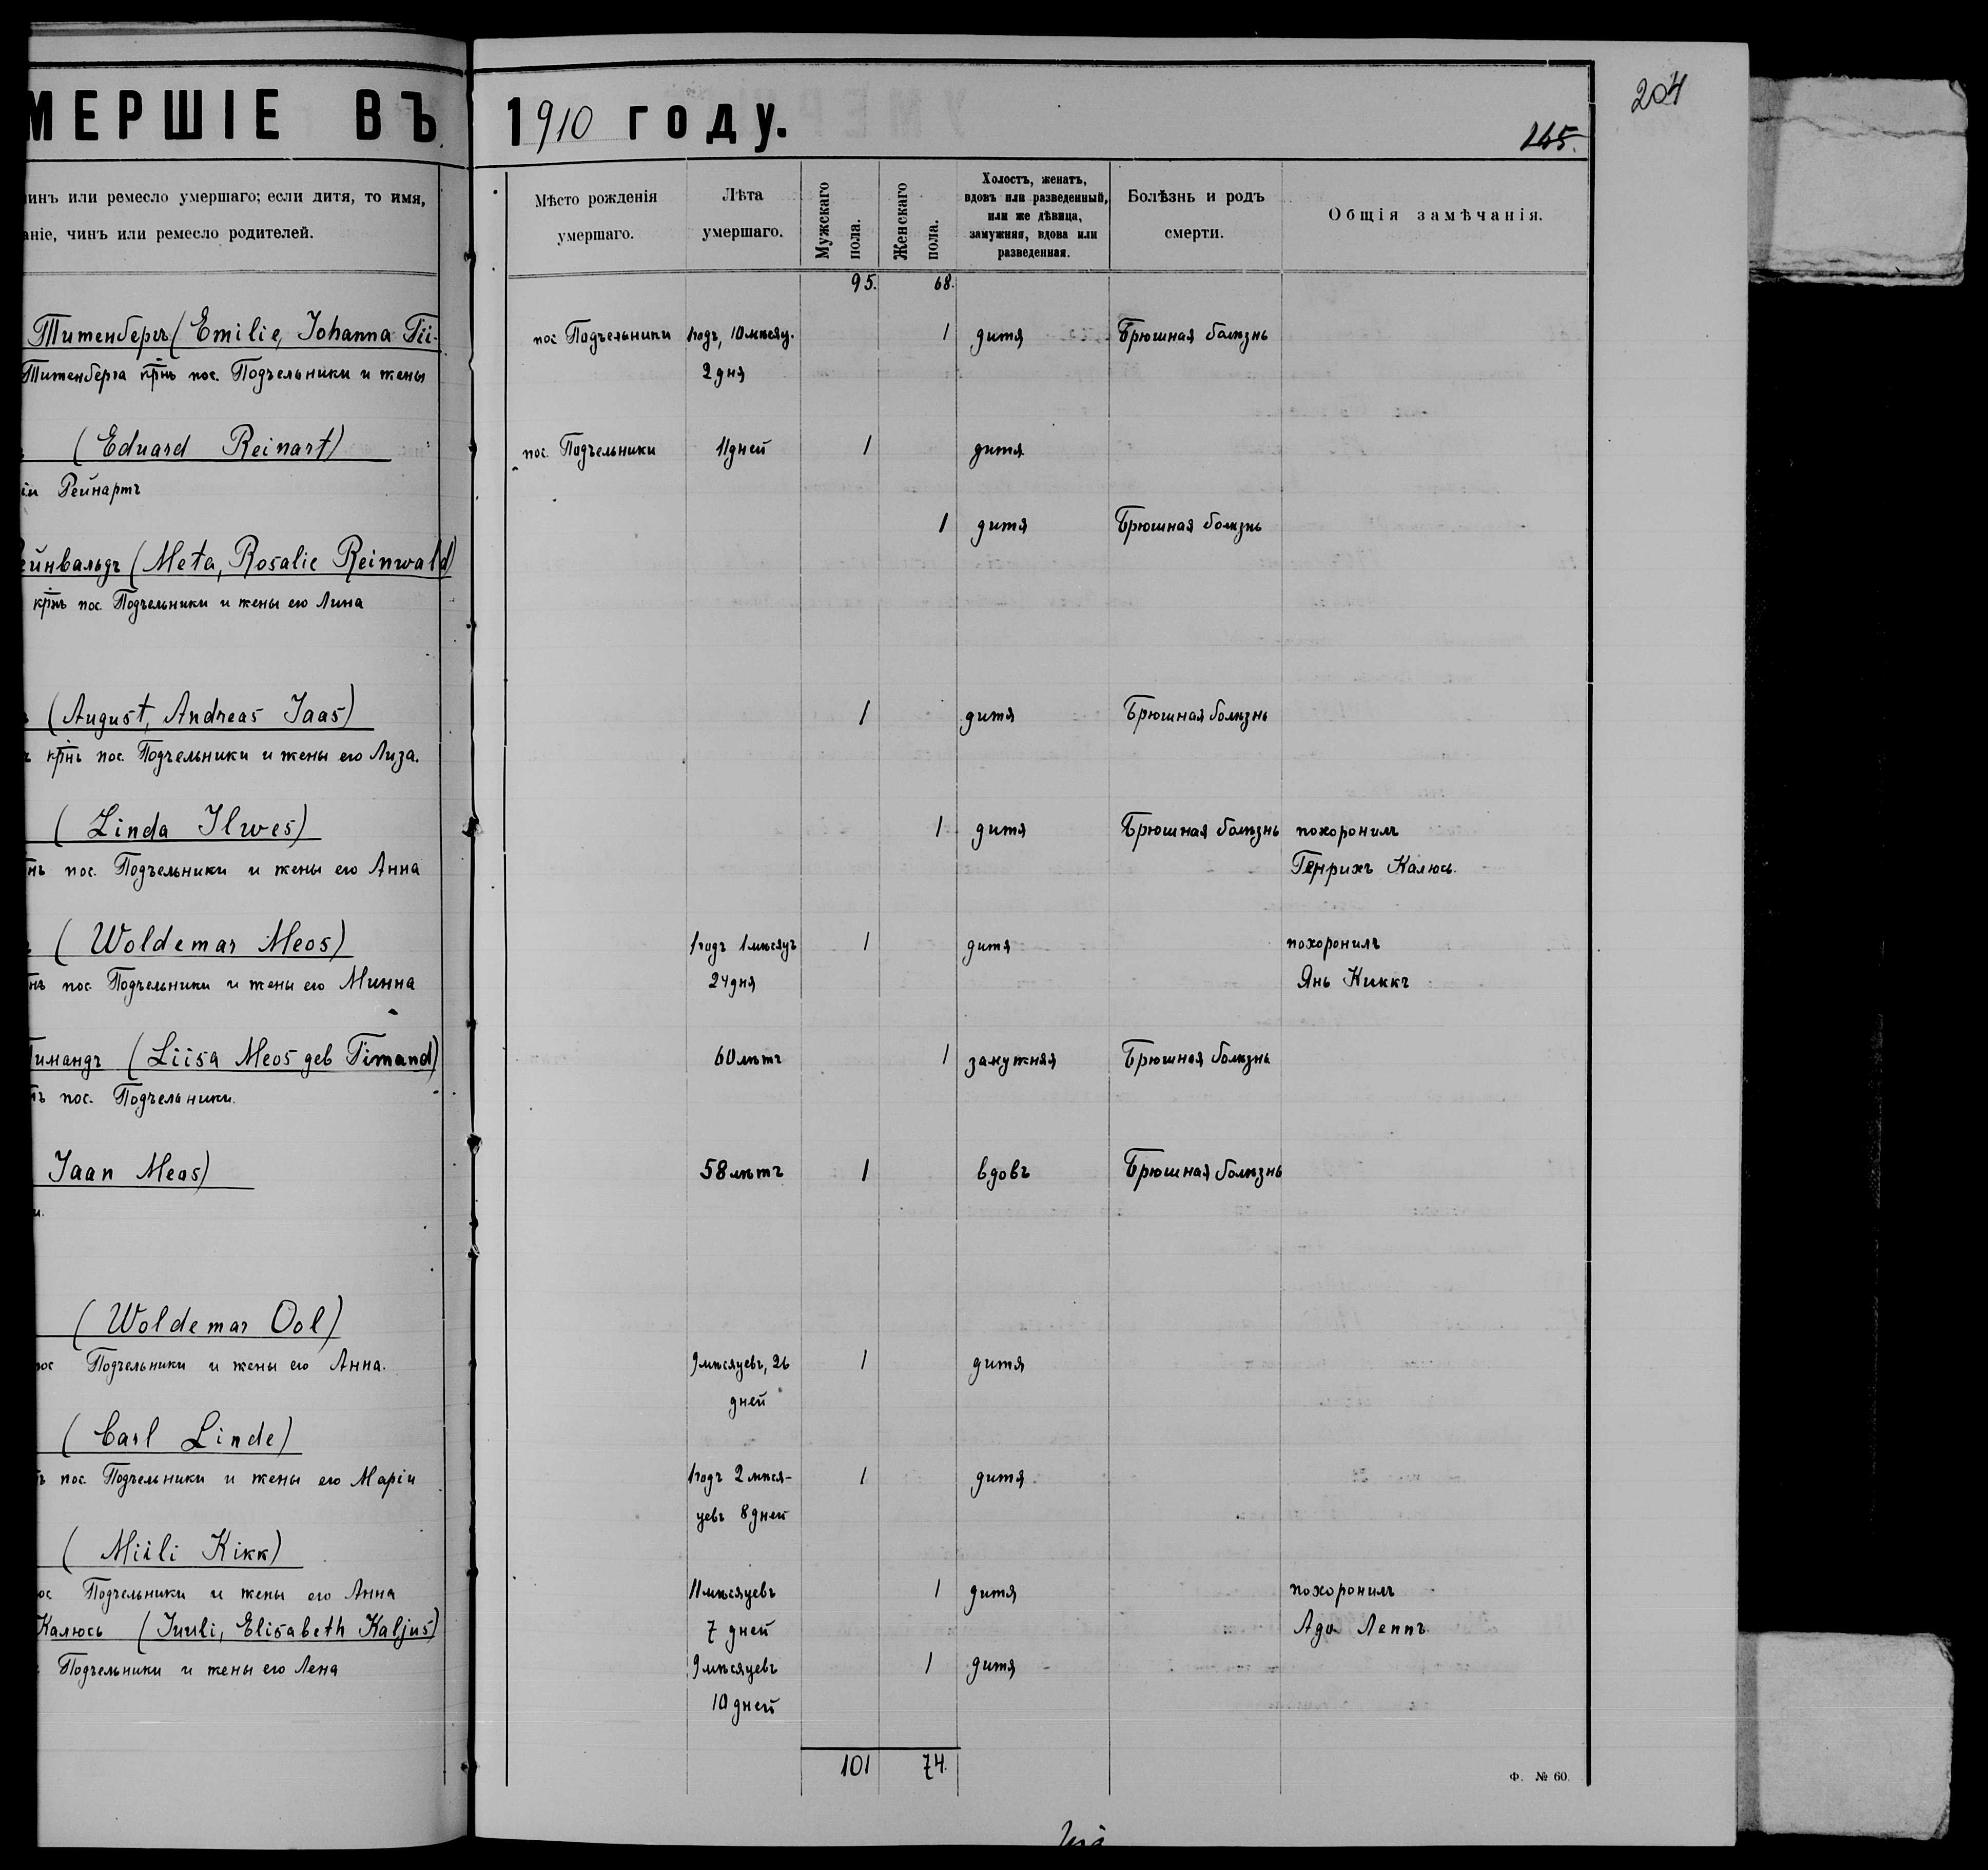 МЕРШІЕ ВЪ 1910 ГОДУ.
204
145.
чинъ или ремесло умершаго; если дитя, то имя,
аніе, чинъ или ремесло родителей.
Мѣсто рожденія умершаго.
Лѣта умершаго.
Мужскаго пола.
Женскаго пола.
Холостъ, женатъ, вдовъ или разведенный, или же дѣвица, замужняя, вдова или разведенная.
Болѣзнь и родъ смерти.
Общія замѣчанія.
95. 68.
Титенбергъ (Emilie, Johanna Tii- пос Подъельники 1 годъ, 10 мѣсяц. 1 дитя Брюшная болѣзнь
Титенберга крнъ пос. Подъельники и жены 2 дня
(Eduard Reinart) пос. Подъельники 11 дней 1 дитя
іи Рейнартъ
1 дитя Брюшная болѣзнь
ейнвальдъ (Meta, Rosalie Reinwald)
крнъ пос. Подъельники и жены его Лина
(August, Andreas Jaas) 1 дитя Брюшная болѣзнь
крнъ пос. Подъельники и жены его Лиза.
(Linda Ilwes) 1 дитя Брюшная болѣзнь похоронилъ
нъ пос. Подъельники и жены его Анна Генрихъ Калюсь.
(Woldemar Meos) 1 годъ 1 мѣсяцъ 1 дитя похоронилъ
нъ пос. Подъельники и жены его Минна 24 дня Янъ Киккъ
Тимандъ (Liisa Meos geb Timand) 60 лѣтъ 1 замужняя Брюшная болѣзнь
нъ пос. Подъельники.
Jaan Meos) 58 лѣтъ 1 вдовъ Брюшная болѣзнь
и.
(Woldemar Ool)
пос Подъельники и жены его Анна. 9 мѣсяцевъ, 26 1 дитя
дней
(Carl Linde)
ъ пос. Подъельники и жены его Маріи 1 годъ 2 мѣся- 1 дитя
цевъ 8 дней
(Miili Kikk)
ос Подъельники и жены его Анна 11 мѣсяцевъ 1 дитя похоронилъ
Калюсь (Juuli, Elisabeth Kaljus) 7 дней Адо Леппъ
Подъельники и жены его Лена 9 мѣсяцевъ 1 дитя
10 дней
101 74.
Ф. № 60.